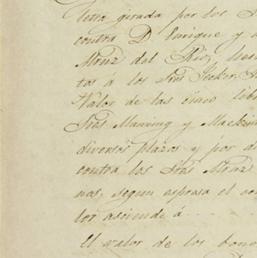 Letra girada por los
contra D Enrique y
del Rio,
tos á los Sres
Valor de las cinco
Sres Manning y
diversos plazos y por
contra los Sres
nas, segun espresa el
lor asciende á
El valor de los bono